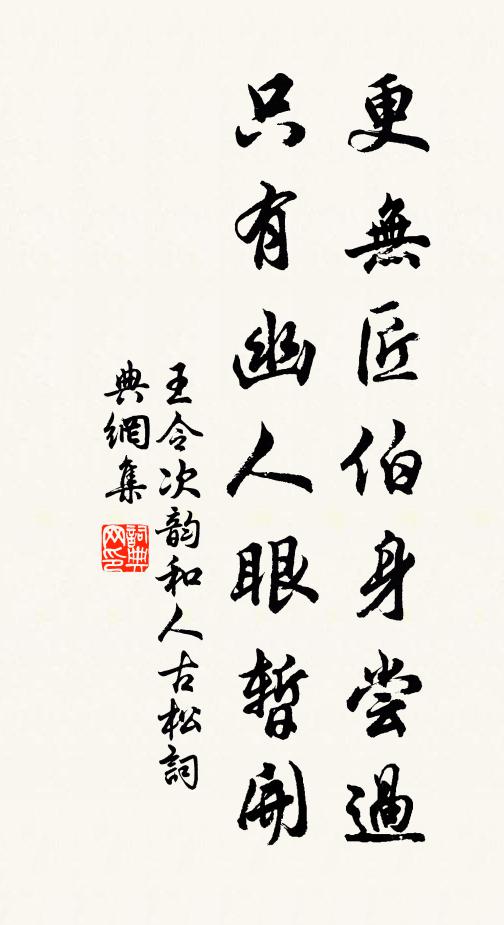 更無匠伯身尝過
只有幽人眼暫開
王令次韵和人古松詞
典網集
詞典网印